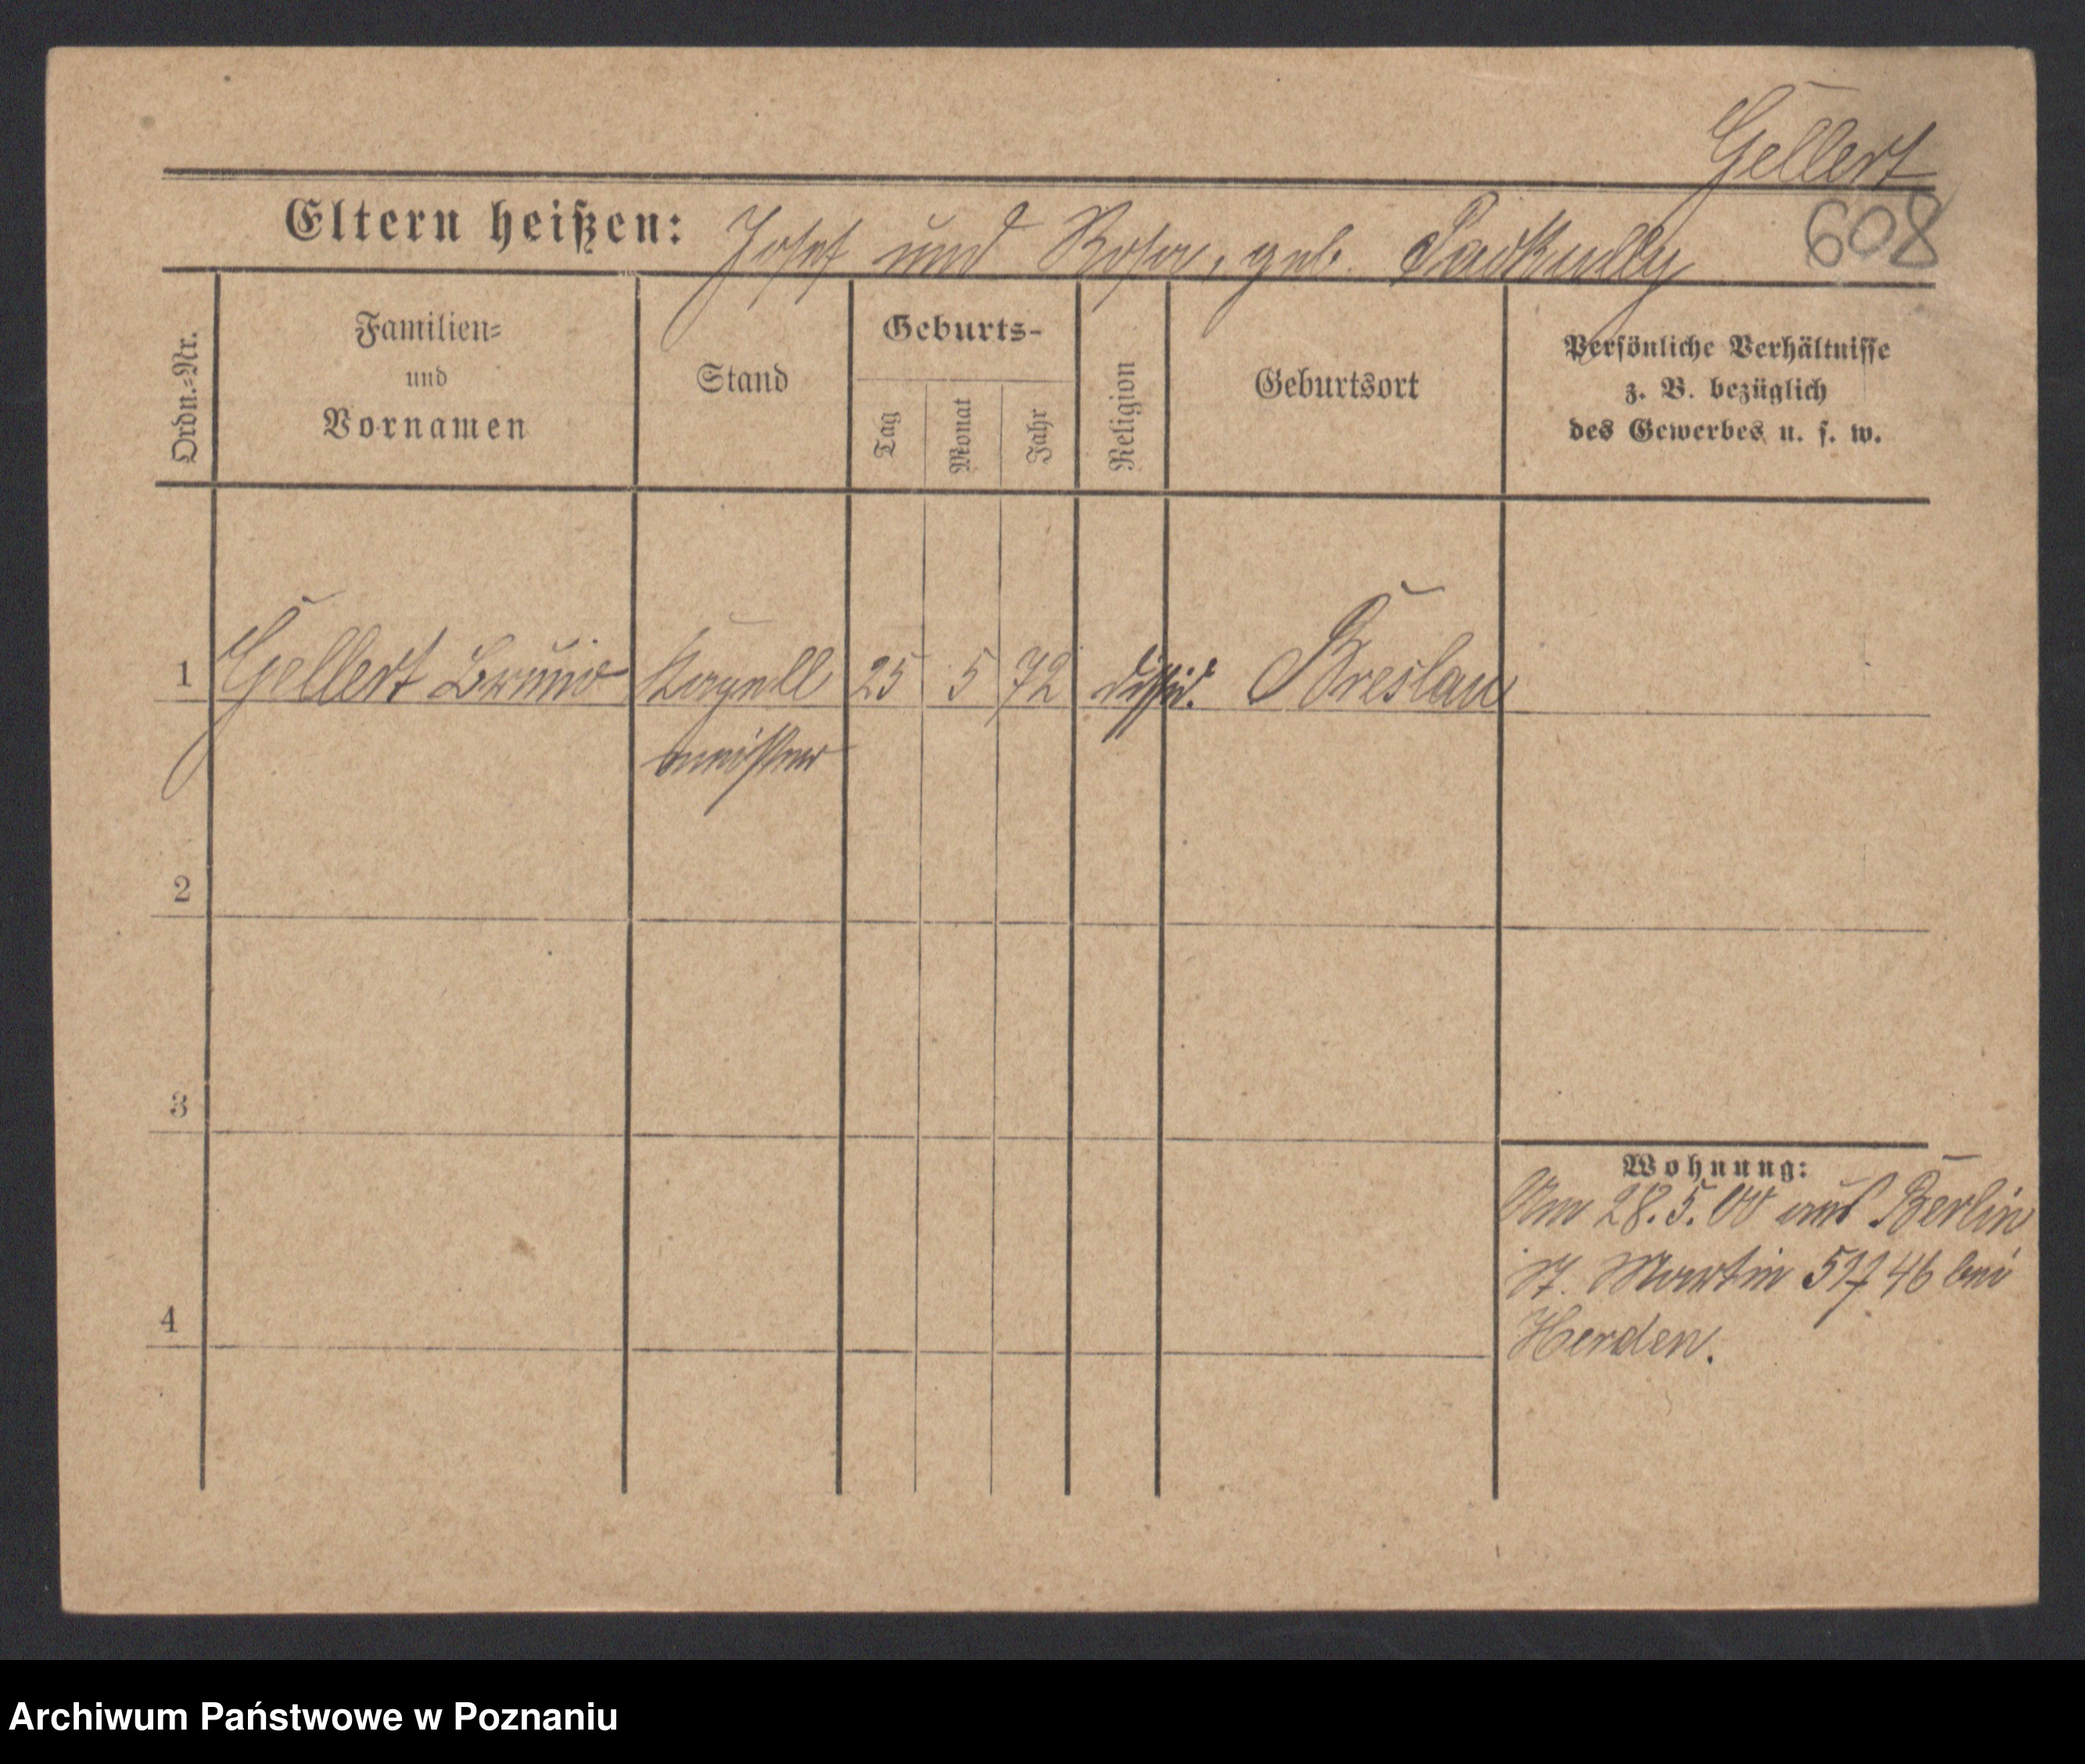 Gellert
608
Eltern heißen: Josef und Rosa, geb.
Ordn.=Nr.
Familien=
und
Vornamen
Stand
Geburts-
Tag
Monat
Jahr
Religion
Geburtsort
Persönliche Verhältnisse
z. B. bezüglich
des Gewerbes u. s. w.
1 Gellert Bruno Kapell 25 5 72 dissid. Breslau
meister
2
3
4
Wohnung:
Am 28.5.00 aus Berlin
St. Martin bei
Herden.
Archiwum Państwowe w Poznaniu